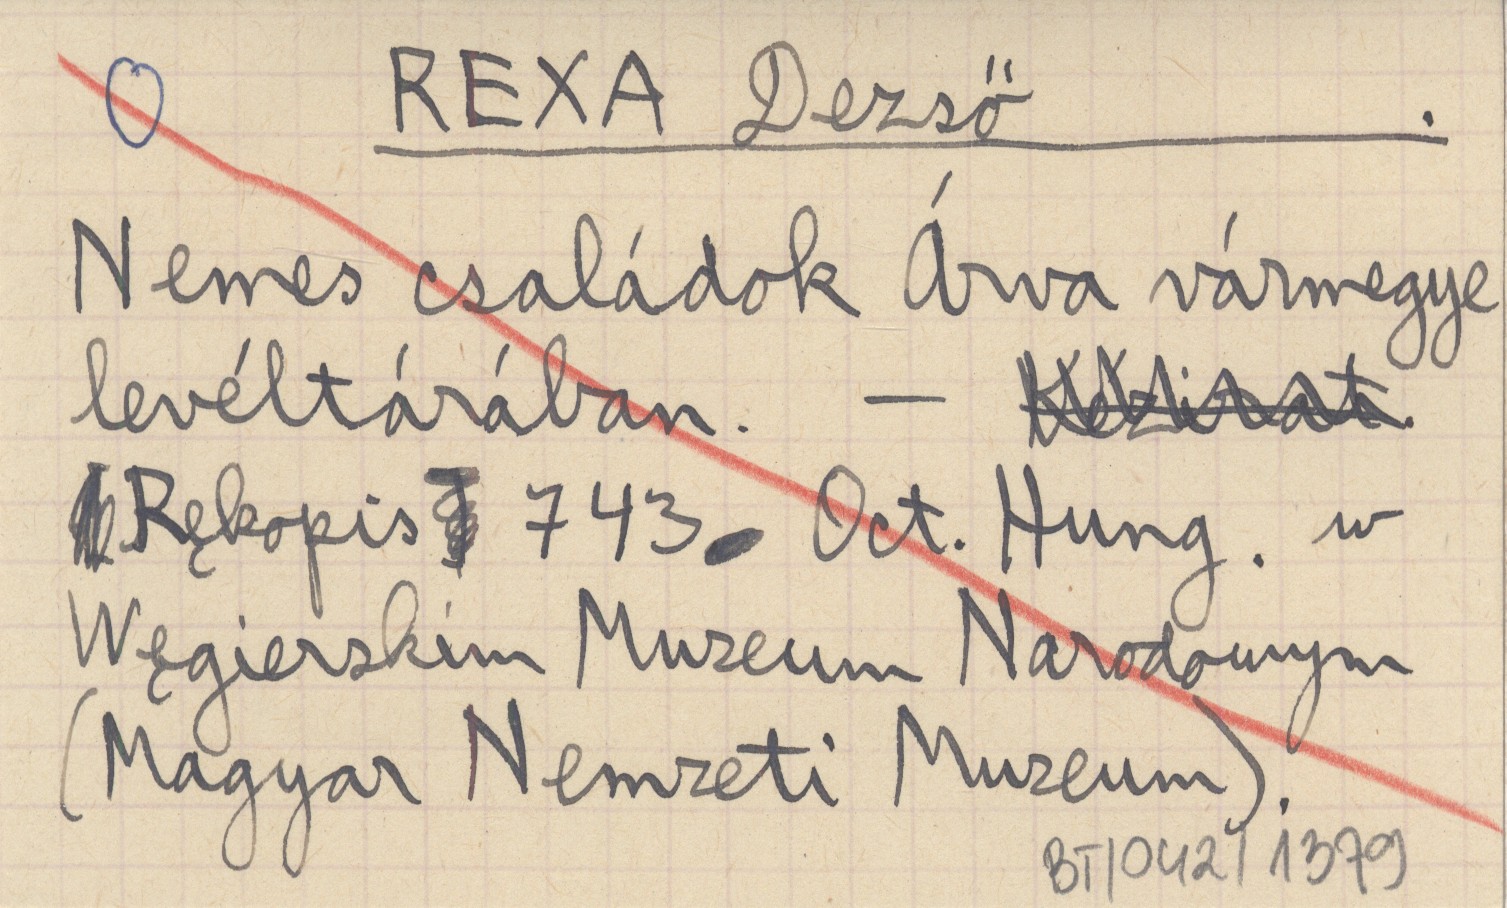 REXA Dezső .
Nemes családok Árva vármegye
levéltárában. — Kézirat.
Rękopis 743. Oct. Hung. w
Węgierskim Muzeum Narodowym
(Magyar Nemzeti Muzeum).
BT/042/1379